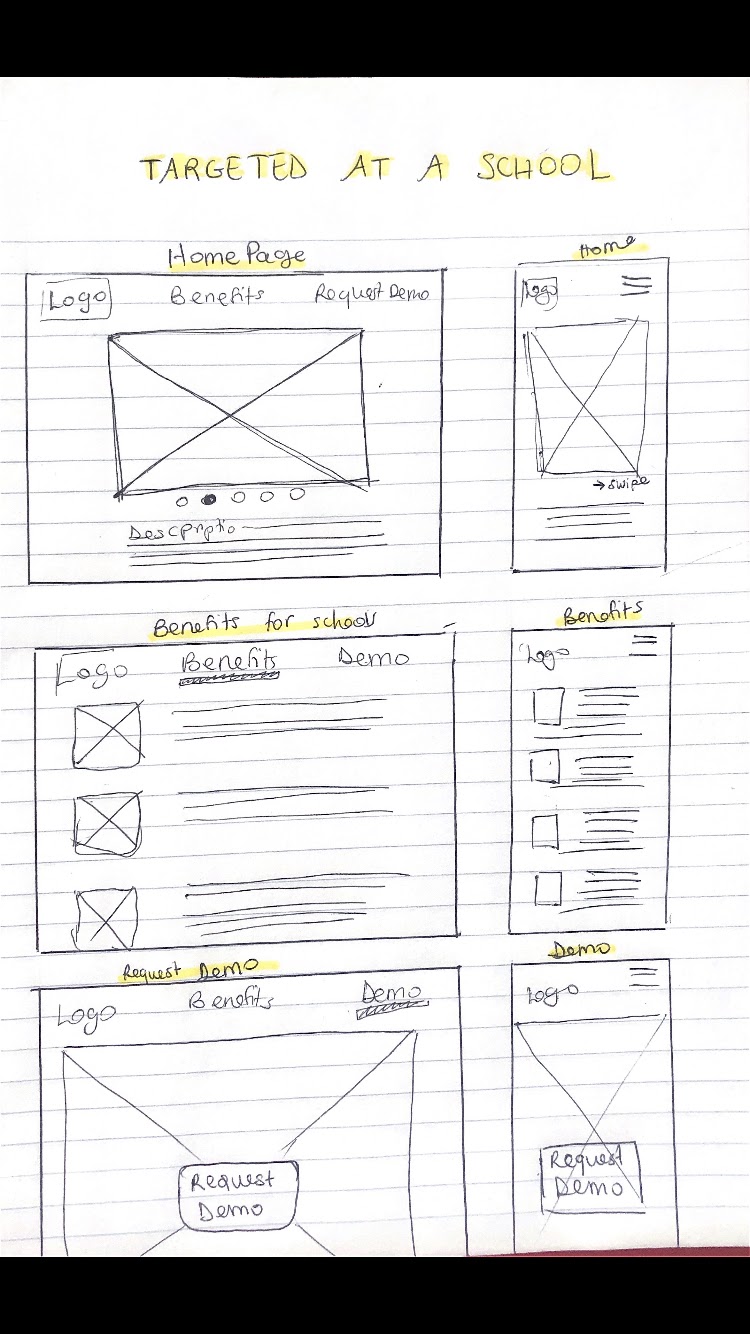 TARGETED AT A SCHOOL
Home Page
Logo Benefits Request Demo
Home
Logo
→ swipe
Benefits for schools
Logo Benefits Demo
Benefits
Logo
Request Demo
Logo Benefits Demo
Request
Demo
Demo
Logo
Request
Demo